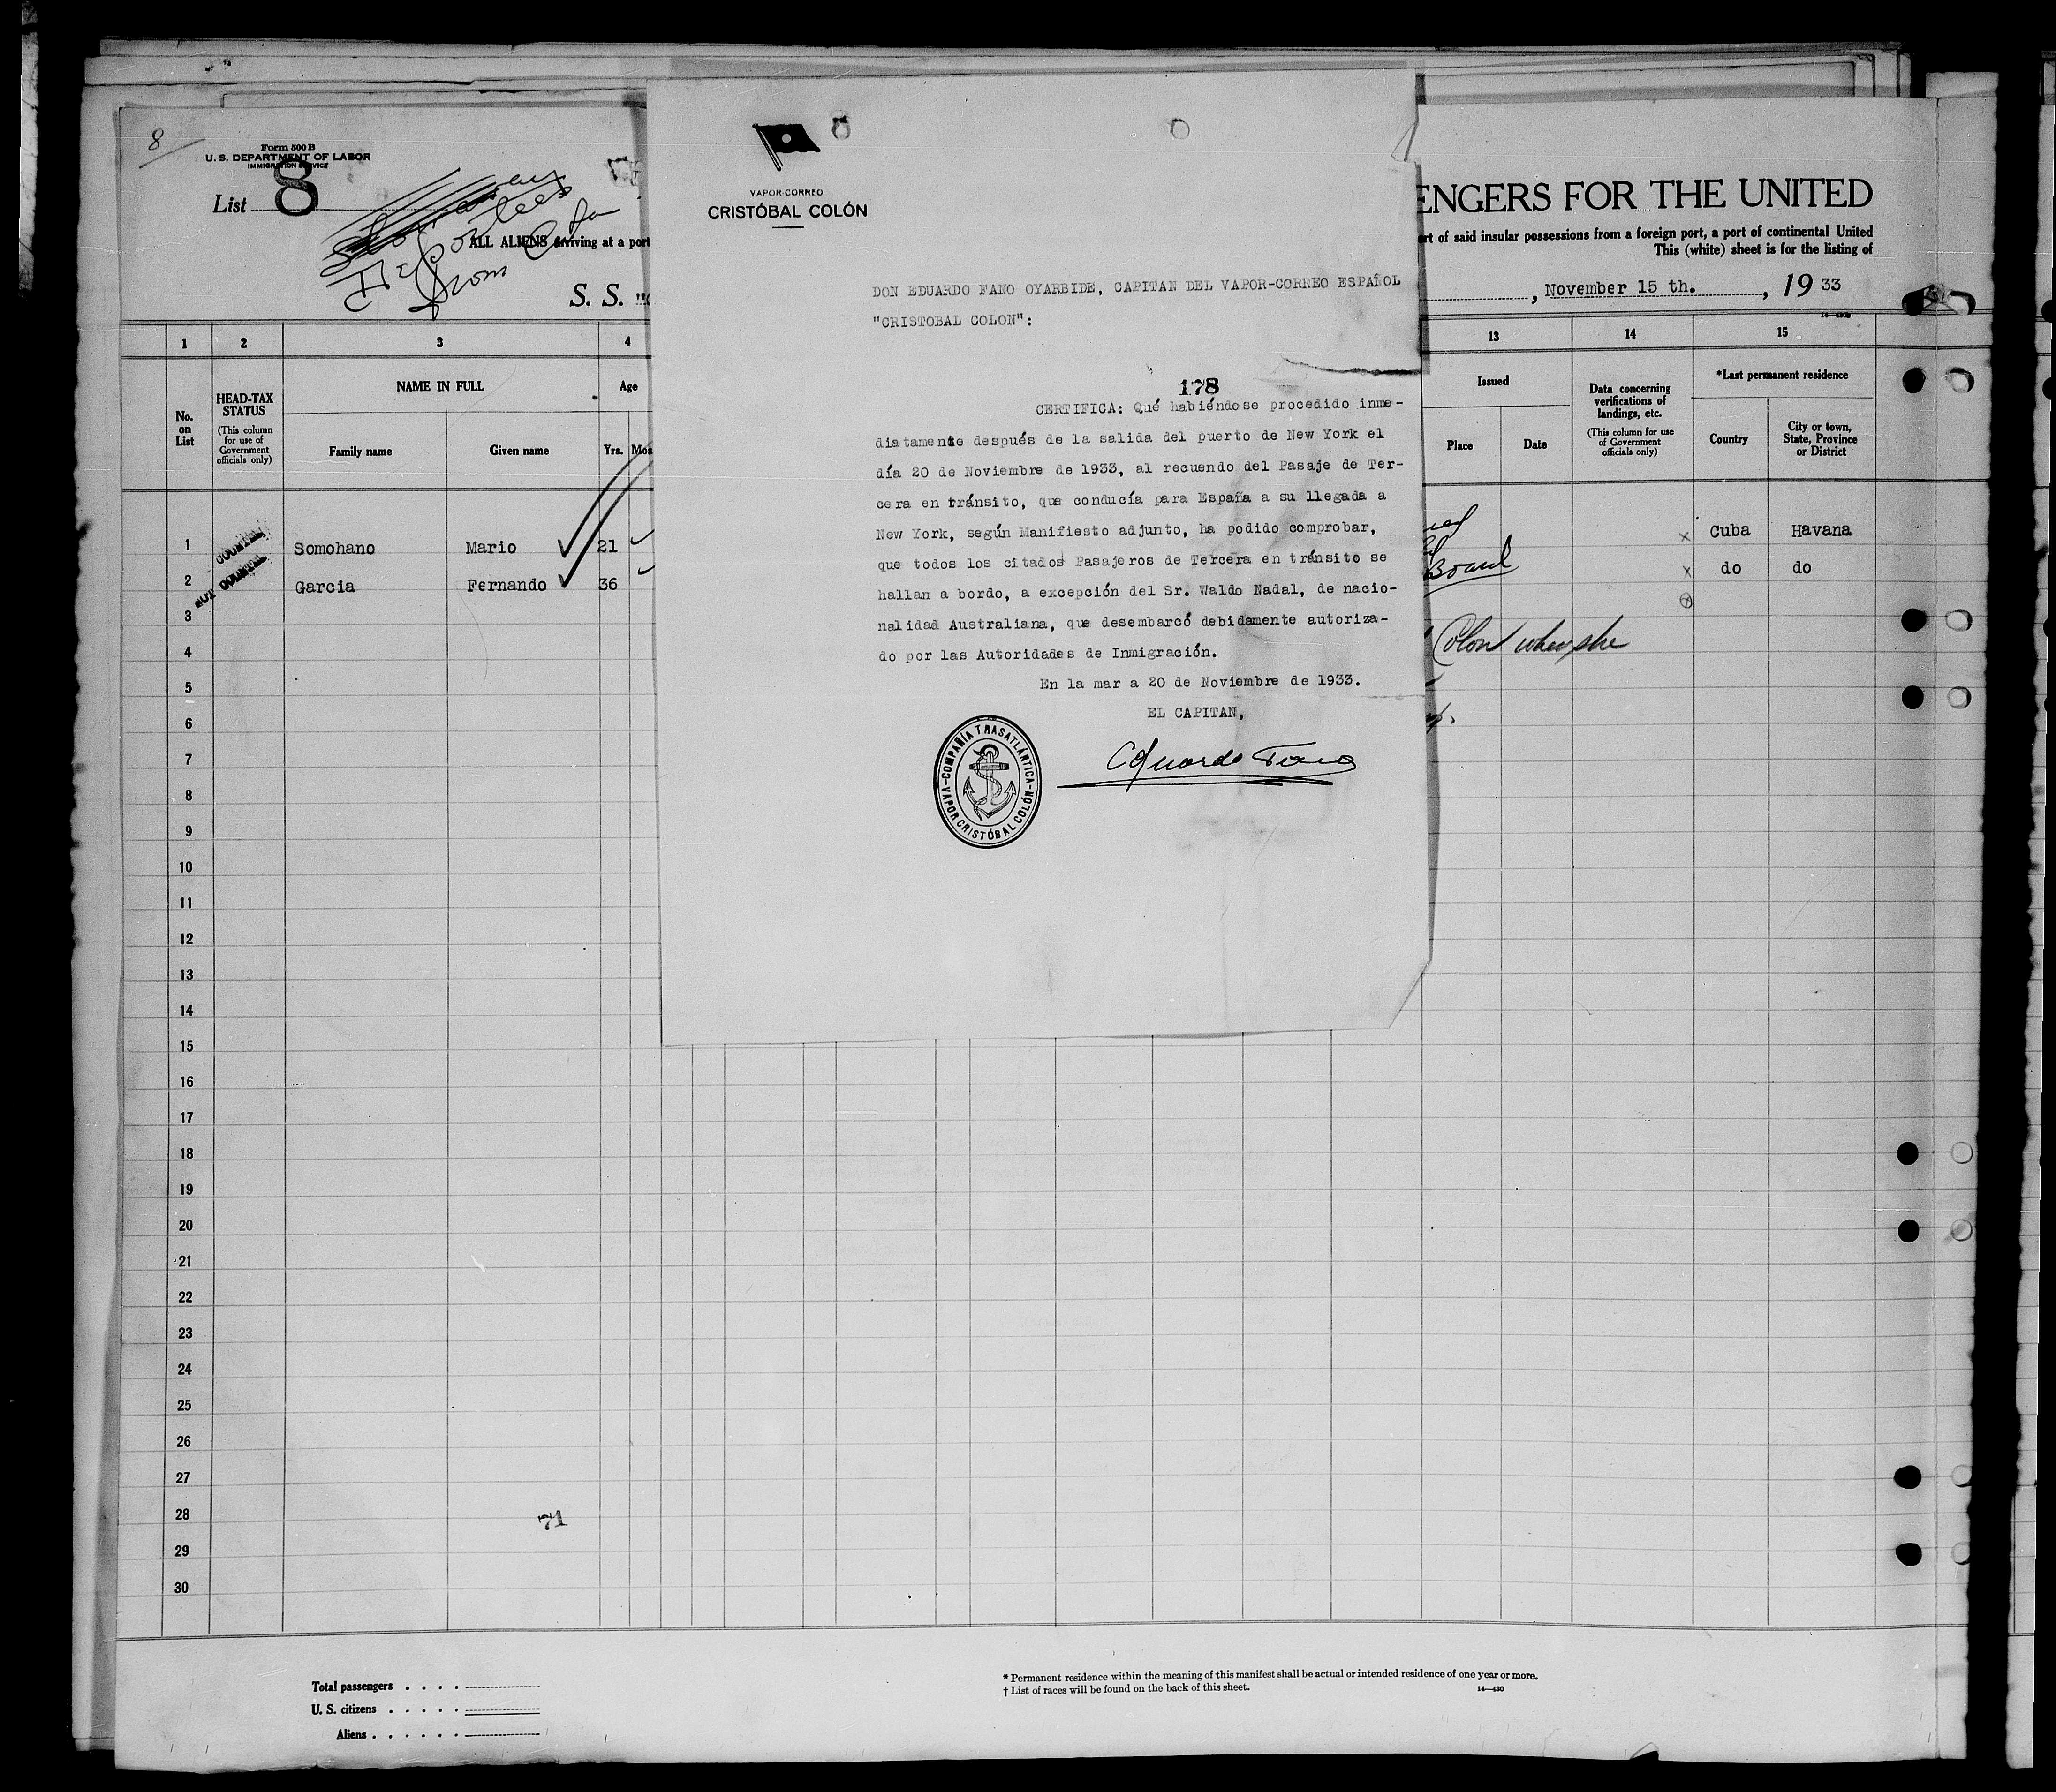 8
Form 500 B
U. S. DEPARTMENT OF LABOR
IMMIGRATION SERVICE
List 8
Deportees
from Cuba
ALL ALIENS arriving at a port
S. S. "C
VAPOR-CORREO
CRISTÓBAL COLÓN
DON EDUARDO FANO OYARBIDE, CAPITAN DEL VAPOR-CORREO ESPAÑOL
"CRISTOBAL COLON":
178
CERTIFICA: Qué habiéndose procedido inme-
diatamente después de la salida del puerto de New York el
día 20 de Noviembre de 1933, al recuendo del Pasaje de Ter-
cera en tránsito, que conducía para España a su llegada a
New York, según Manifiesto adjunto, ha podido comprobar,
que todos los citados Pasajeros de Tercera en tránsito se
hallan a bordo, a excepción del Sr. Waldo Nadal, de nacio-
nalidad Australiana, que desembarcó debidamente autoriza-
do por las Autoridades de Inmigración.
En la mar a 20 de Noviembre de 1933.
EL CAPITAN,
Eduardo Fano
COMPAÑÍA TRASATLÁNTICA
VAPOR CRISTÓBAL COLÓN
ENGERS FOR THE UNITED
rt of said insular possessions from a foreign port, a port of continental United
This (white) sheet is for the listing of
, November 15 th. , 19 33
1 2 3 4 13 14 15
No. on List
HEAD-TAX STATUS
(This column for use of Government officials only)
NAME IN FULL
Family name Given name
Age
Yrs. Mos
Issued
Place Date
Data concerning verifications of landings, etc.
(This column for use of Government officials only)
*Last permanent residence
Country
City or town, State, Province or District
1 Somohano Mario 21 Cuba Havana
2 Garcia Fernando 36 Board do do
NOT COUNTED
3
4 Colon when she
5
6
7
8
9
10
11
12
13
14
15
16
17
18
19
20
21
22
23
24
25
26
27
28
29
30
71
Total passengers
U. S. citizens
Aliens
* Permanent residence within the meaning of this manifest shall be actual or intended residence of one year or more.
† List of races will be found on the back of this sheet.
14—430